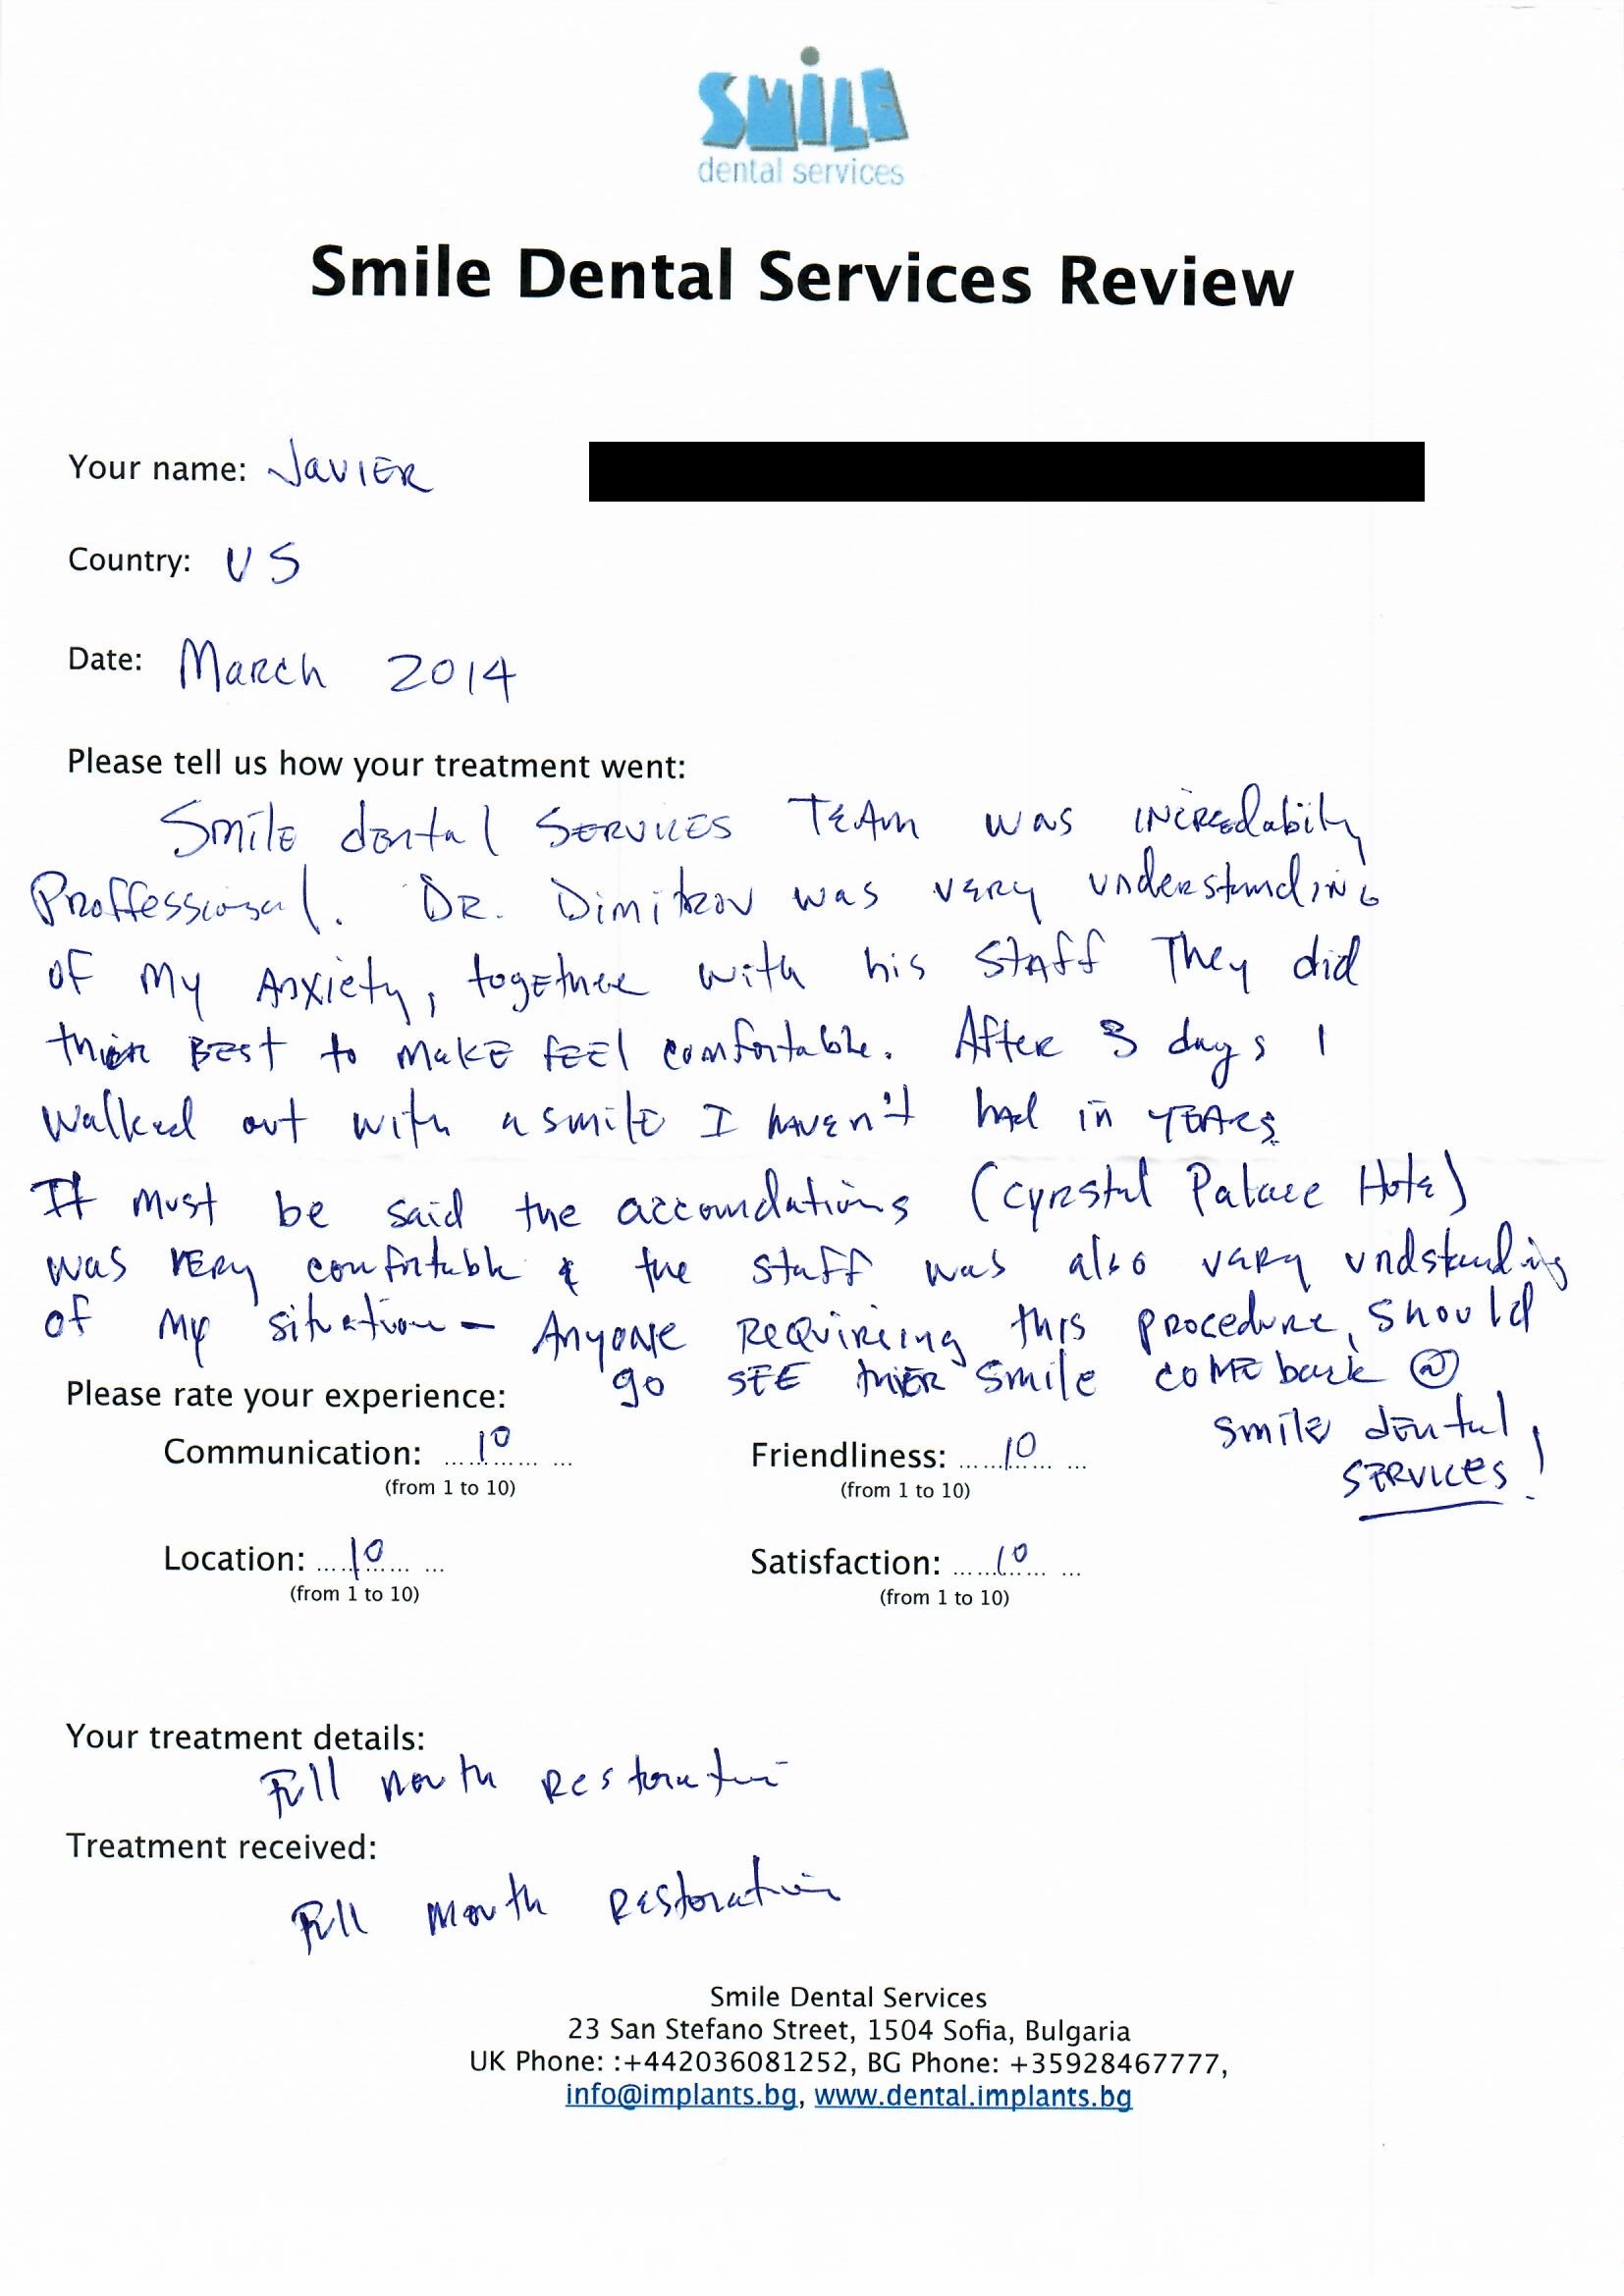 SMILE
dental services
Smile Dental Services Review
Your name: Javier
Country: US
Date: March 2014
Please tell us how your treatment went:
Smile dental Services Team was incredabily
Proffessional. Dr. Dimitrov was very understanding
of my Anxiety, together with his Staff They did
thier Best to make feel comfortable. After 3 days I
walked out with a smile I haven't had in years
It must be said the accomdations (Cyrstal Palace Hote)
was very comfortable & the staff was also very undstanding
of my situation - Anyone Requireing this procedure, should
go see thier smile come back @
Please rate your experience:
smile dental
services!
Communication: ...10... ... Friendliness: ...10... ...
(from 1 to 10) (from 1 to 10)
Location: ...10... ... Satisfaction: ...10... ...
(from 1 to 10) (from 1 to 10)
Your treatment details:
Full mouth Restoration
Treatment received:
Full Mouth Restoration
Smile Dental Services
23 San Stefano Street, 1504 Sofia, Bulgaria
UK Phone: :+442036081252, BG Phone: +35928467777,
info@implants.bg, www.dental.implants.bg